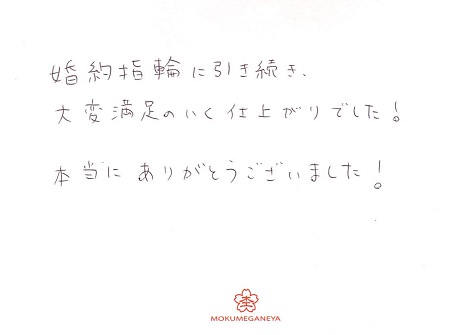 婚約指輪に引き続き、
大変満足のいく仕上がりでした!
本当にありがとうございました!
杢
MOKUMEGANEYA